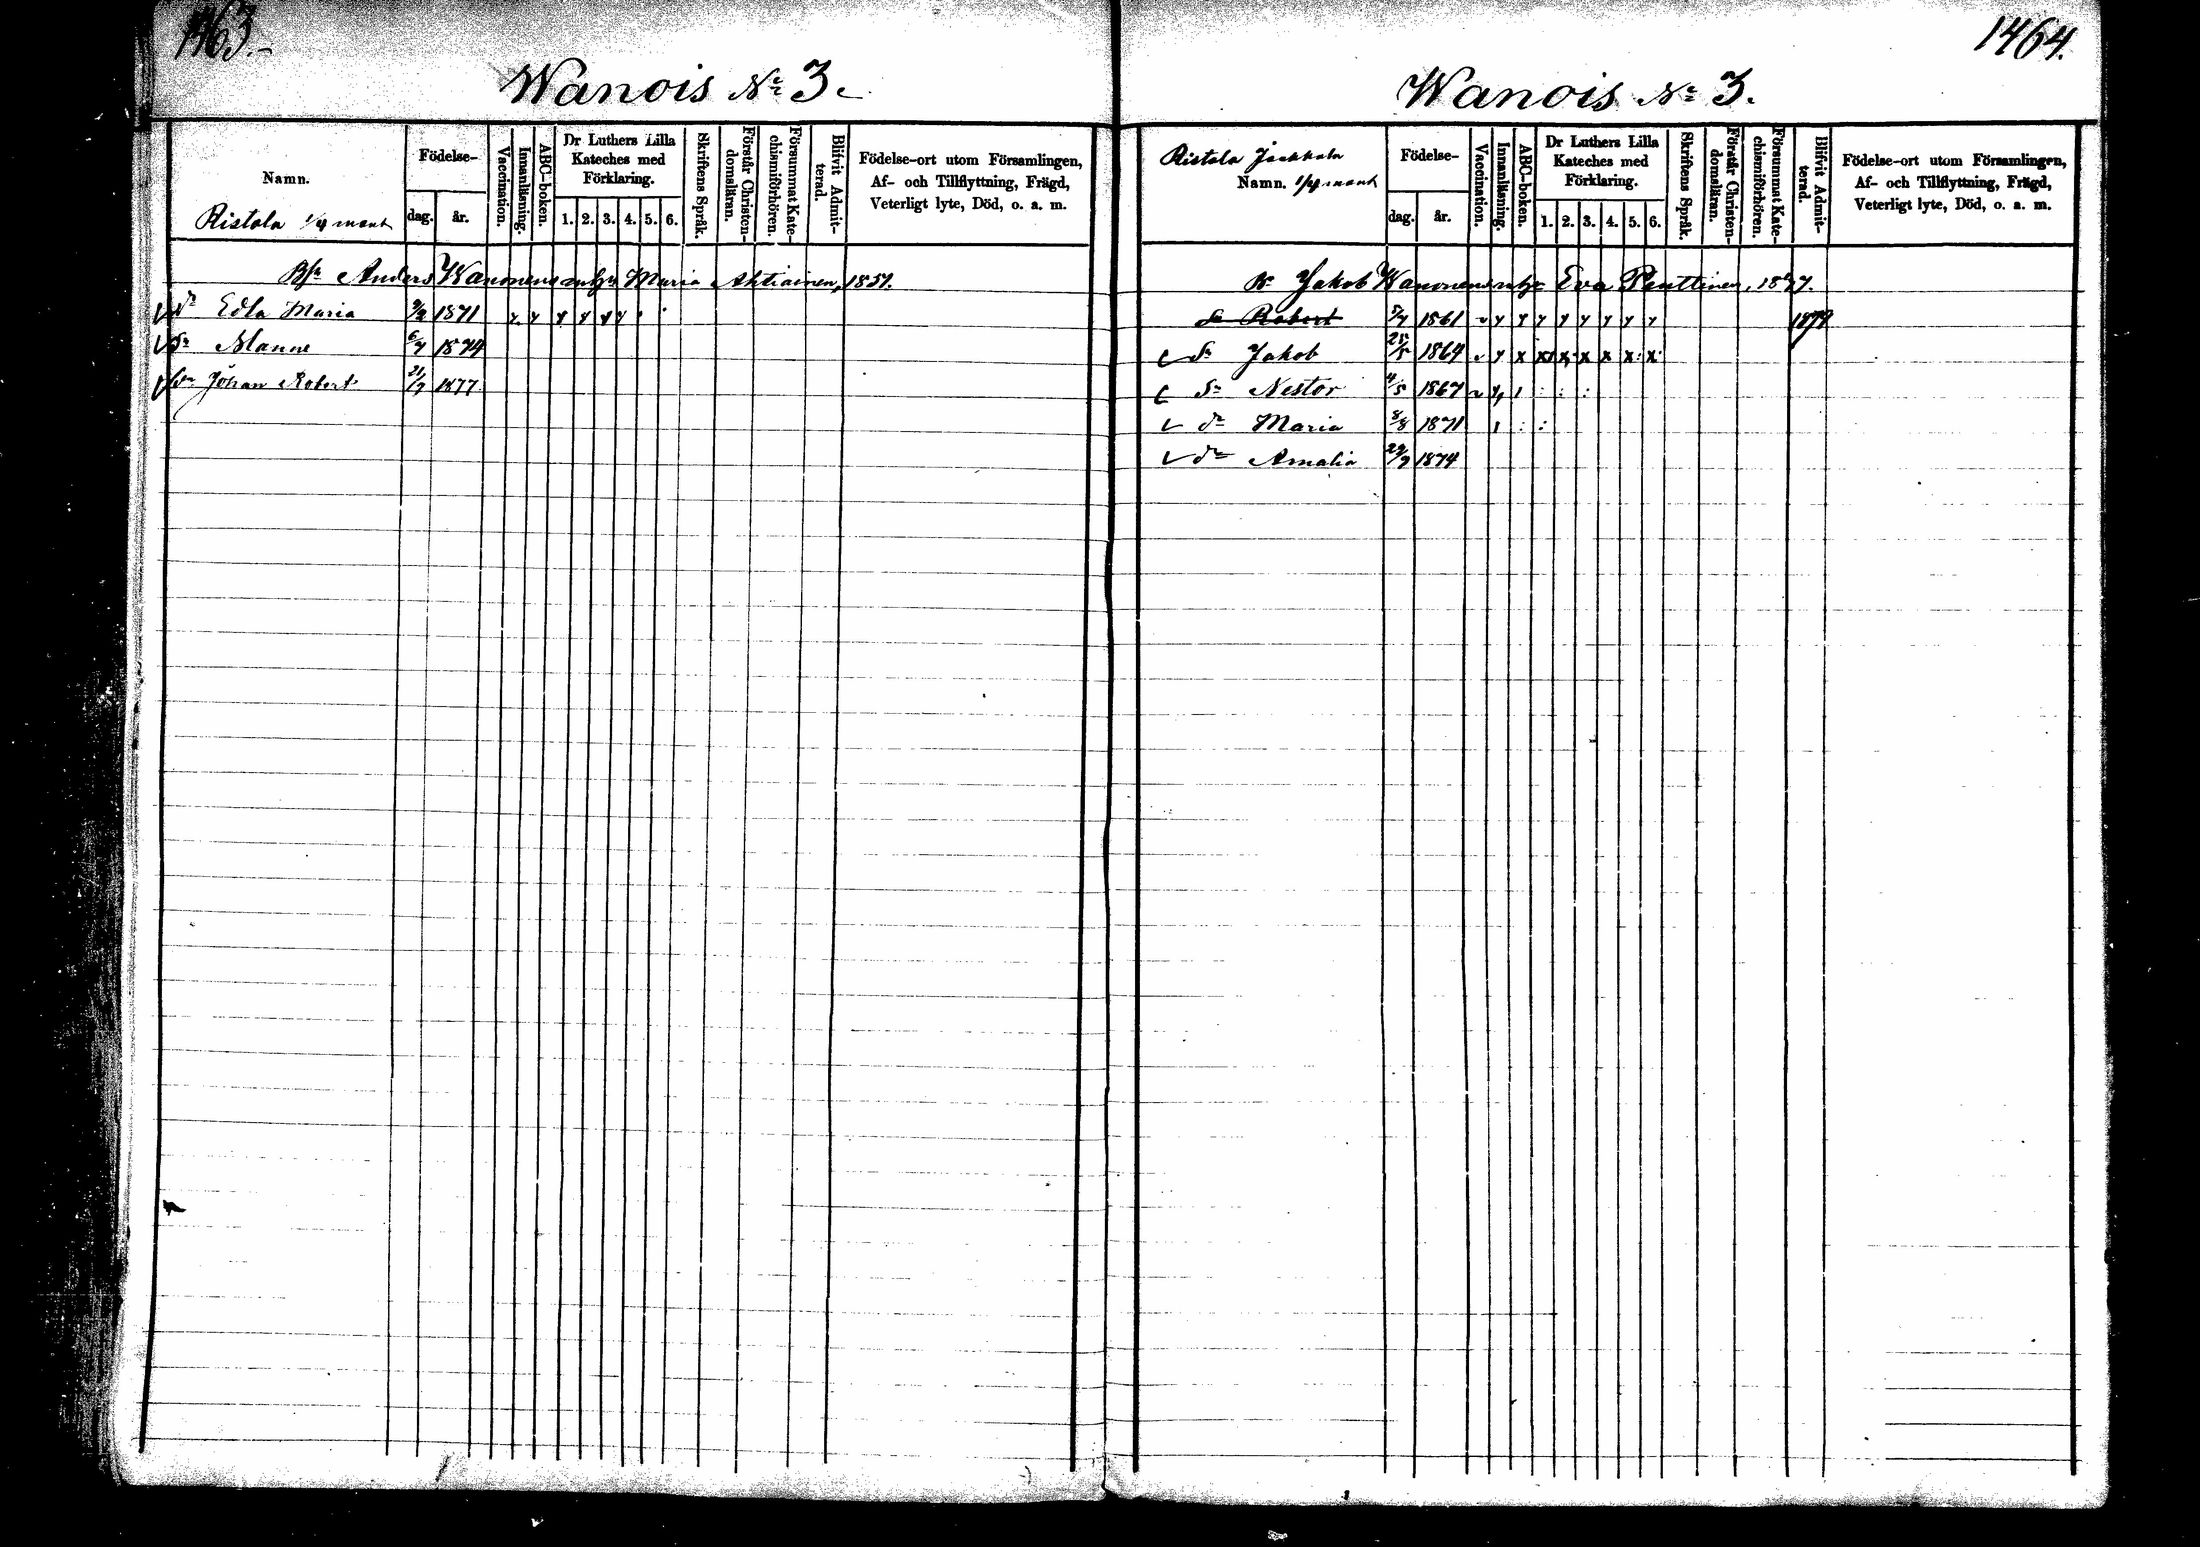 1463.
Wanois No 3.
Namn.
Ristola 1/4 mant
Födelse-
dag. år.
Vaccination.
Innanläsning.
ABC-boken.
Dr Luthers Lilla
Kateches med
Förklaring.
1. 2. 3. 4. 5. 6.
Skriftens Språk.
Förstår Christen-
domsläran.
Försummat Kate-
chismiförhören.
Blifvit Admit-
terad.
Födelse-ort utom Församlingen,
Af- och Tillflyttning, Frägd,
Veterligt lyte, Död, o. a. m.
Anders Wanonens Maria Ahtiainen, 1851.
dr Edla Maria 9/2 1871
Sn Manne 6/7 1874
Sn Johan Robert 21/7 1877
1464.
Wanois No 3.
Ristola Jaakkola
Namn. 1/4 mant
Födelse-
dag. år.
Vaccination.
Innanläsning.
ABC-boken.
Dr Luthers Lilla
Kateches med
Förklaring.
1. 2. 3. 4. 5. 6.
Skriftens Språk.
Förstår Christen-
domsläran.
Försummat Kate-
chismiförhören.
Blifvit Admit-
terad.
Födelse-ort utom Församlingen,
Af- och Tillflyttning, Frägd,
Veterligt lyte, Död, o. a. m.
Jakob Wanonens Eva Penttinen,
Sn Robert 5/7 1861
Sn Jakob 25/5 1864
Sn Nestor 4/5 1867
dr Maria 8/8 1871
dr Amalia 22/7 1874